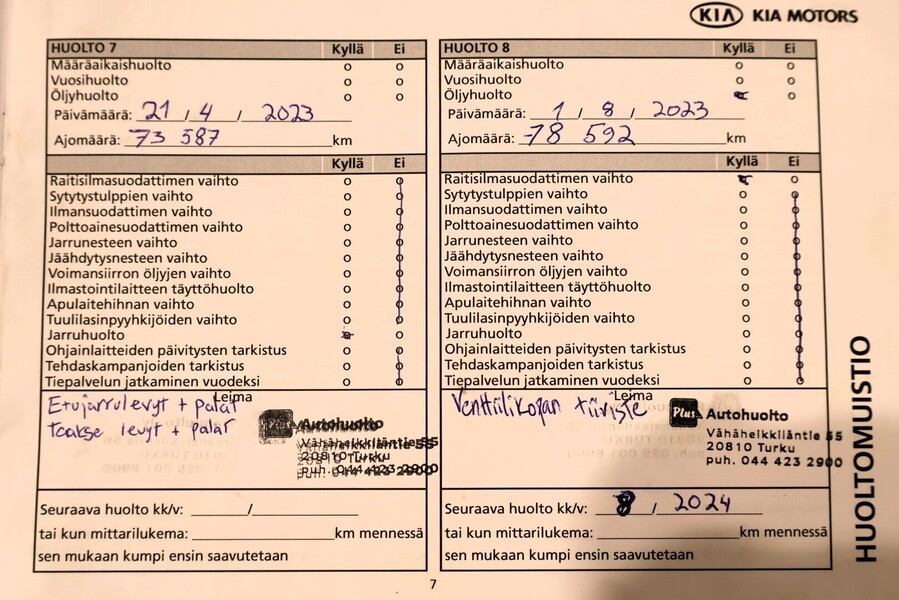 KIA KIA MOTORS
HUOLTO 7 Kyllä Ei
Määräaikaishuolto o o
Vuosihuolto o o
Öljyhuolto o o
Päivämäärä: 21 / 4 / 2023
Ajomäärä: 73 587 km
Kyllä Ei
Raitisilmasuodattimen vaihto o o
Sytytystulppien vaihto o o
Ilmansuodattimen vaihto o o
Polttoainesuodattimen vaihto o o
Jarrunesteen vaihto o o
Jäähdytysnesteen vaihto o o
Voimansiirron öljyjen vaihto o o
Ilmastointilaitteen täyttöhuolto o o
Apulaitehihnan vaihto o o
Tuulilasinpyyhkijöiden vaihto o o
Jarruhuolto o o
Ohjainlaitteiden päivitysten tarkistus o o
Tehdaskampanjoiden tarkistus o o
Tiepalvelun jatkaminen vuodeksi o o
Leima
Etujarrulevyt + palat
Taakse levyt + palat
Autohuolto
Vähäheikkiläntie 55
20810 Turku
puh. 044 423 2900
Seuraava huolto kk/v: /
tai kun mittarilukema: km mennessä
sen mukaan kumpi ensin saavutetaan
HUOLTO 8 Kyllä Ei
Määräaikaishuolto o o
Vuosihuolto o o
Öljyhuolto o
Päivämäärä: 1 / 8 / 2023
Ajomäärä: 78 592 km
Kyllä Ei
Raitisilmasuodattimen vaihto o
Sytytystulppien vaihto o o
Ilmansuodattimen vaihto o o
Polttoainesuodattimen vaihto o o
Jarrunesteen vaihto o o
Jäähdytysnesteen vaihto o o
Voimansiirron öljyjen vaihto o o
Ilmastointilaitteen täyttöhuolto o o
Apulaitehihnan vaihto o o
Tuulilasinpyyhkijöiden vaihto o o
Jarruhuolto o o
Ohjainlaitteiden päivitysten tarkistus o o
Tehdaskampanjoiden tarkistus o o
Tiepalvelun jatkaminen vuodeksi o o
Leima
Venttiilikopan tiiviste
Plus Autohuolto
Vähäheikkiläntie 55
20810 Turku
puh. 044 423 2900
Seuraava huolto kk/v: 8 / 2024
tai kun mittarilukema: km mennessä
sen mukaan kumpi ensin saavutetaan
HUOLTOMUISTIO
7